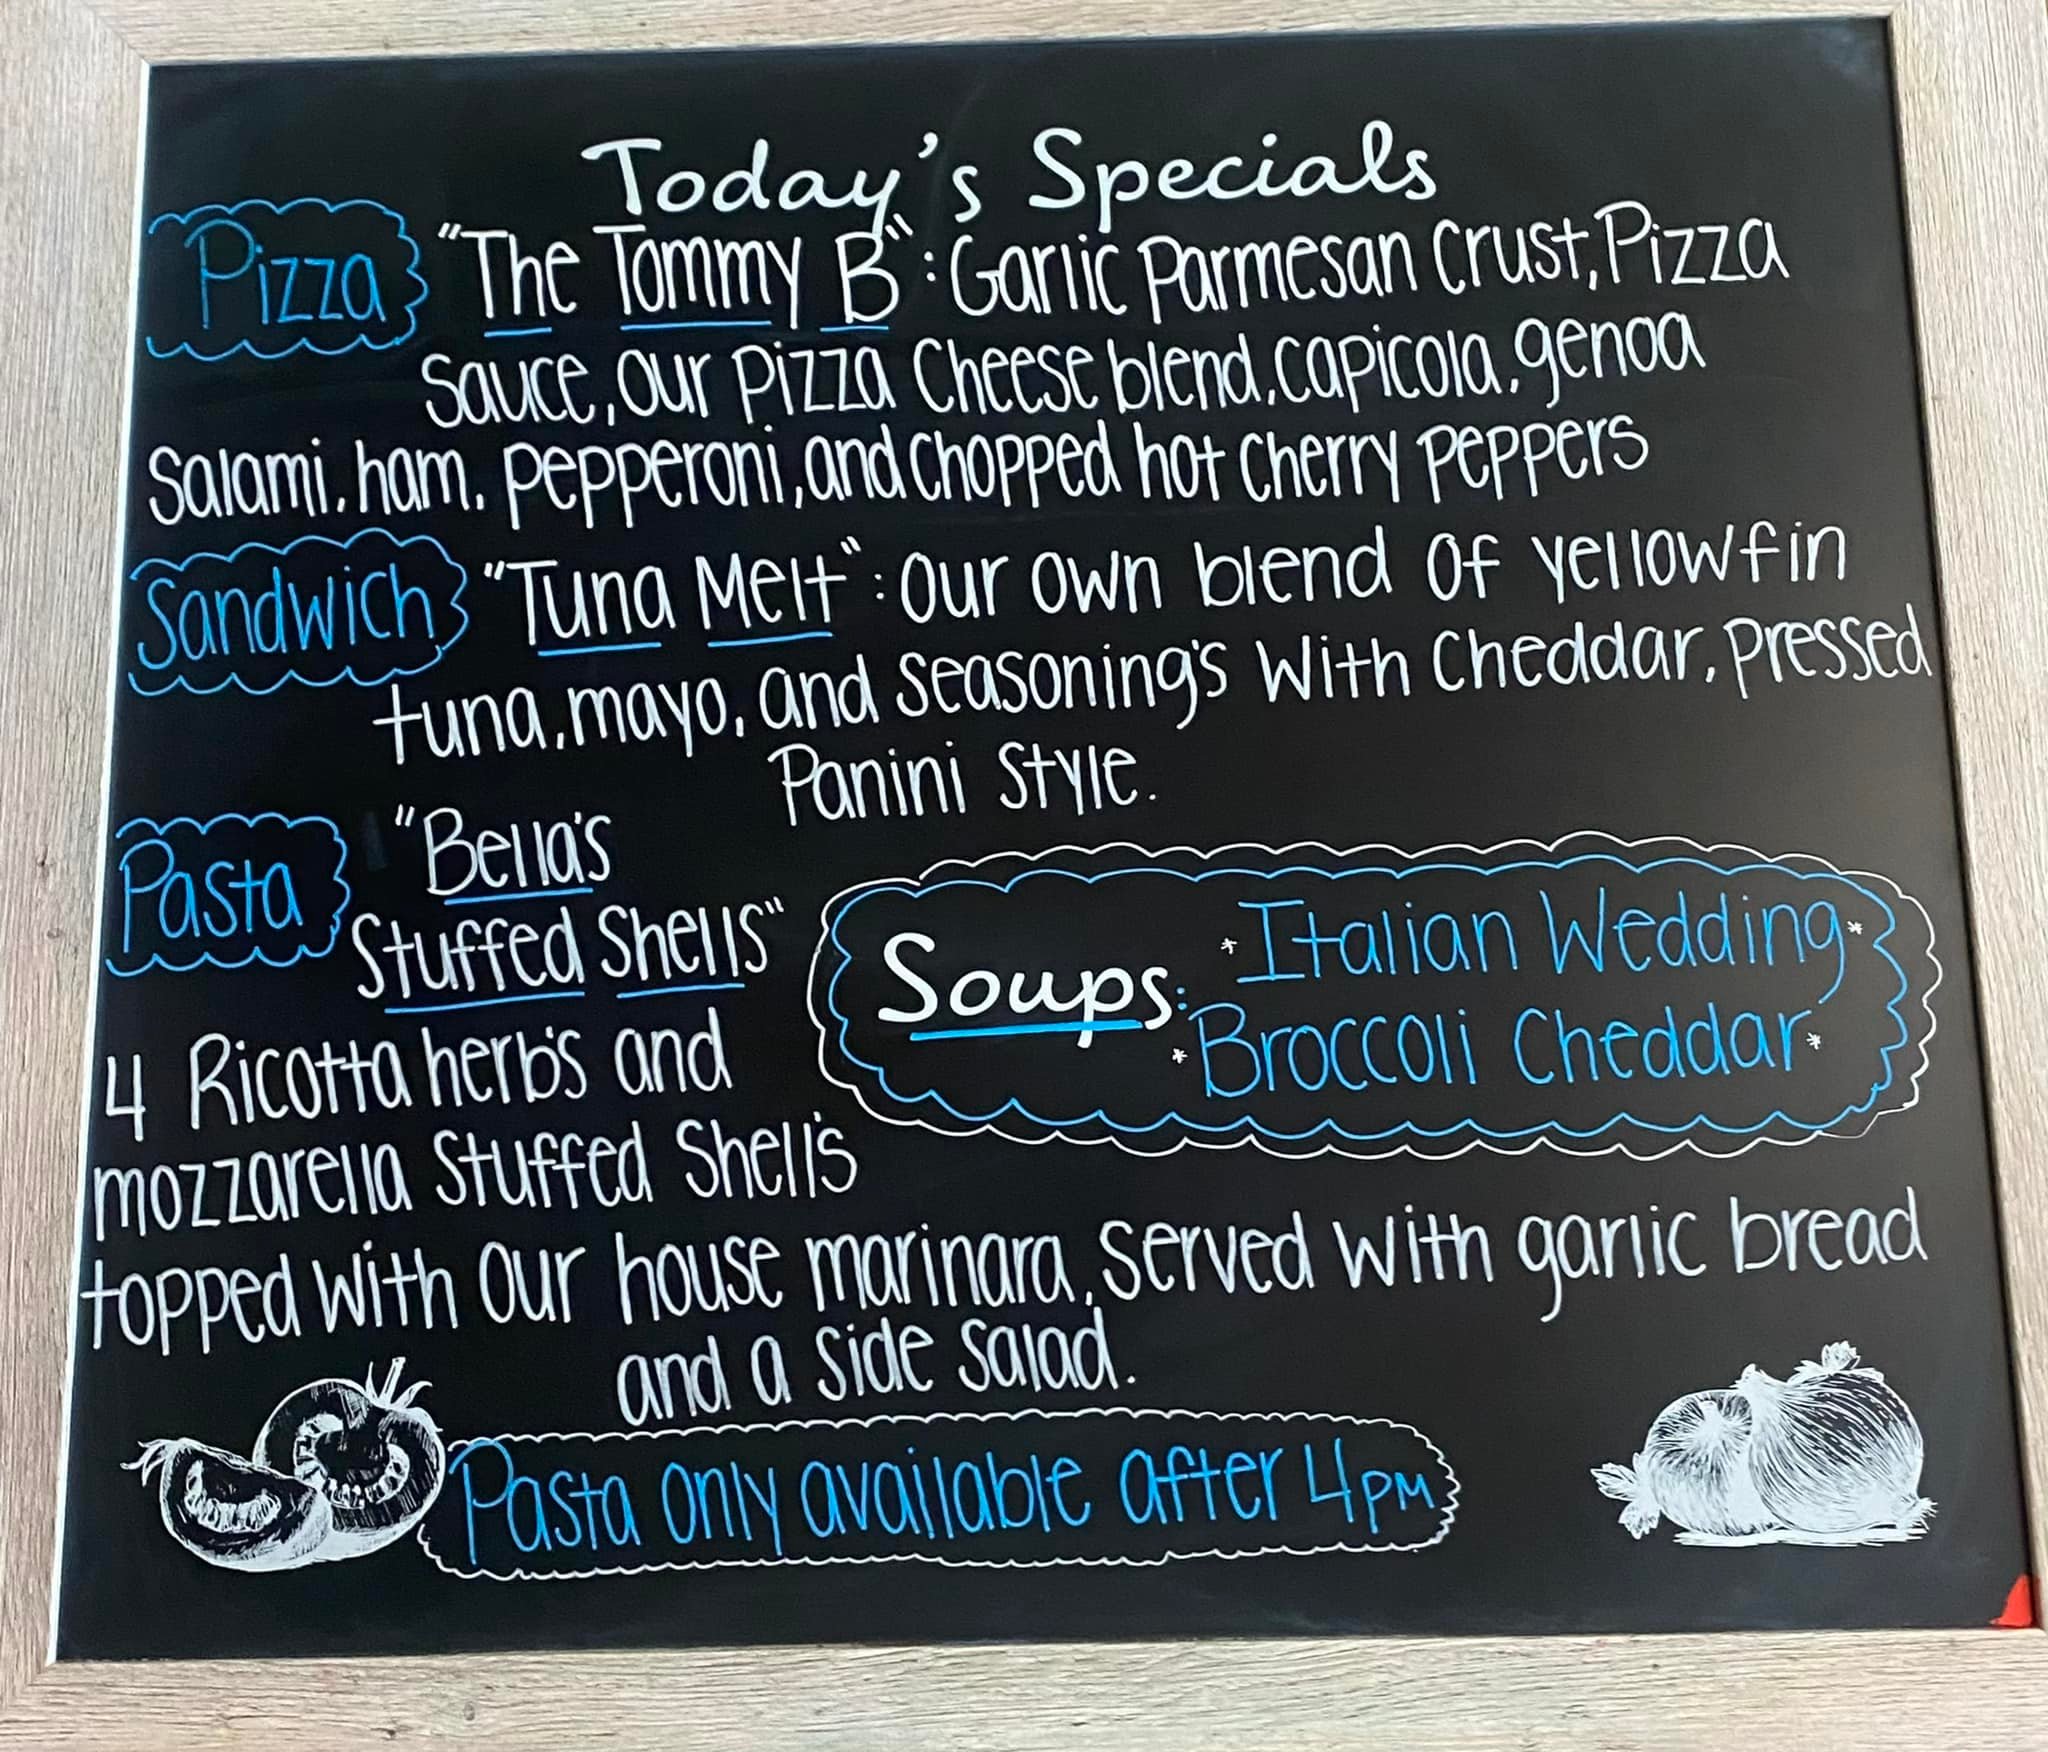 Today's Specials
Pizza "The Tommy B": Garlic Parmesan Crust, Pizza
Sauce, our Pizza Cheese blend, capicola, genoa
Salami, ham, pepperoni, and chopped hot cherry peppers
Sandwich "Tuna Melt": Our own blend of yellowfin
tuna, mayo, and seasoning's with Cheddar, pressed
Panini Style.
Pasta "Bella's
Stuffed Shells"
4 Ricotta herb's and
mozzarella Stuffed Shell's
topped with our house marinara, served with garlic bread
and a side salad.
Soups: *Italian Wedding*
*Broccoli Cheddar*
Pasta only available after 4pm